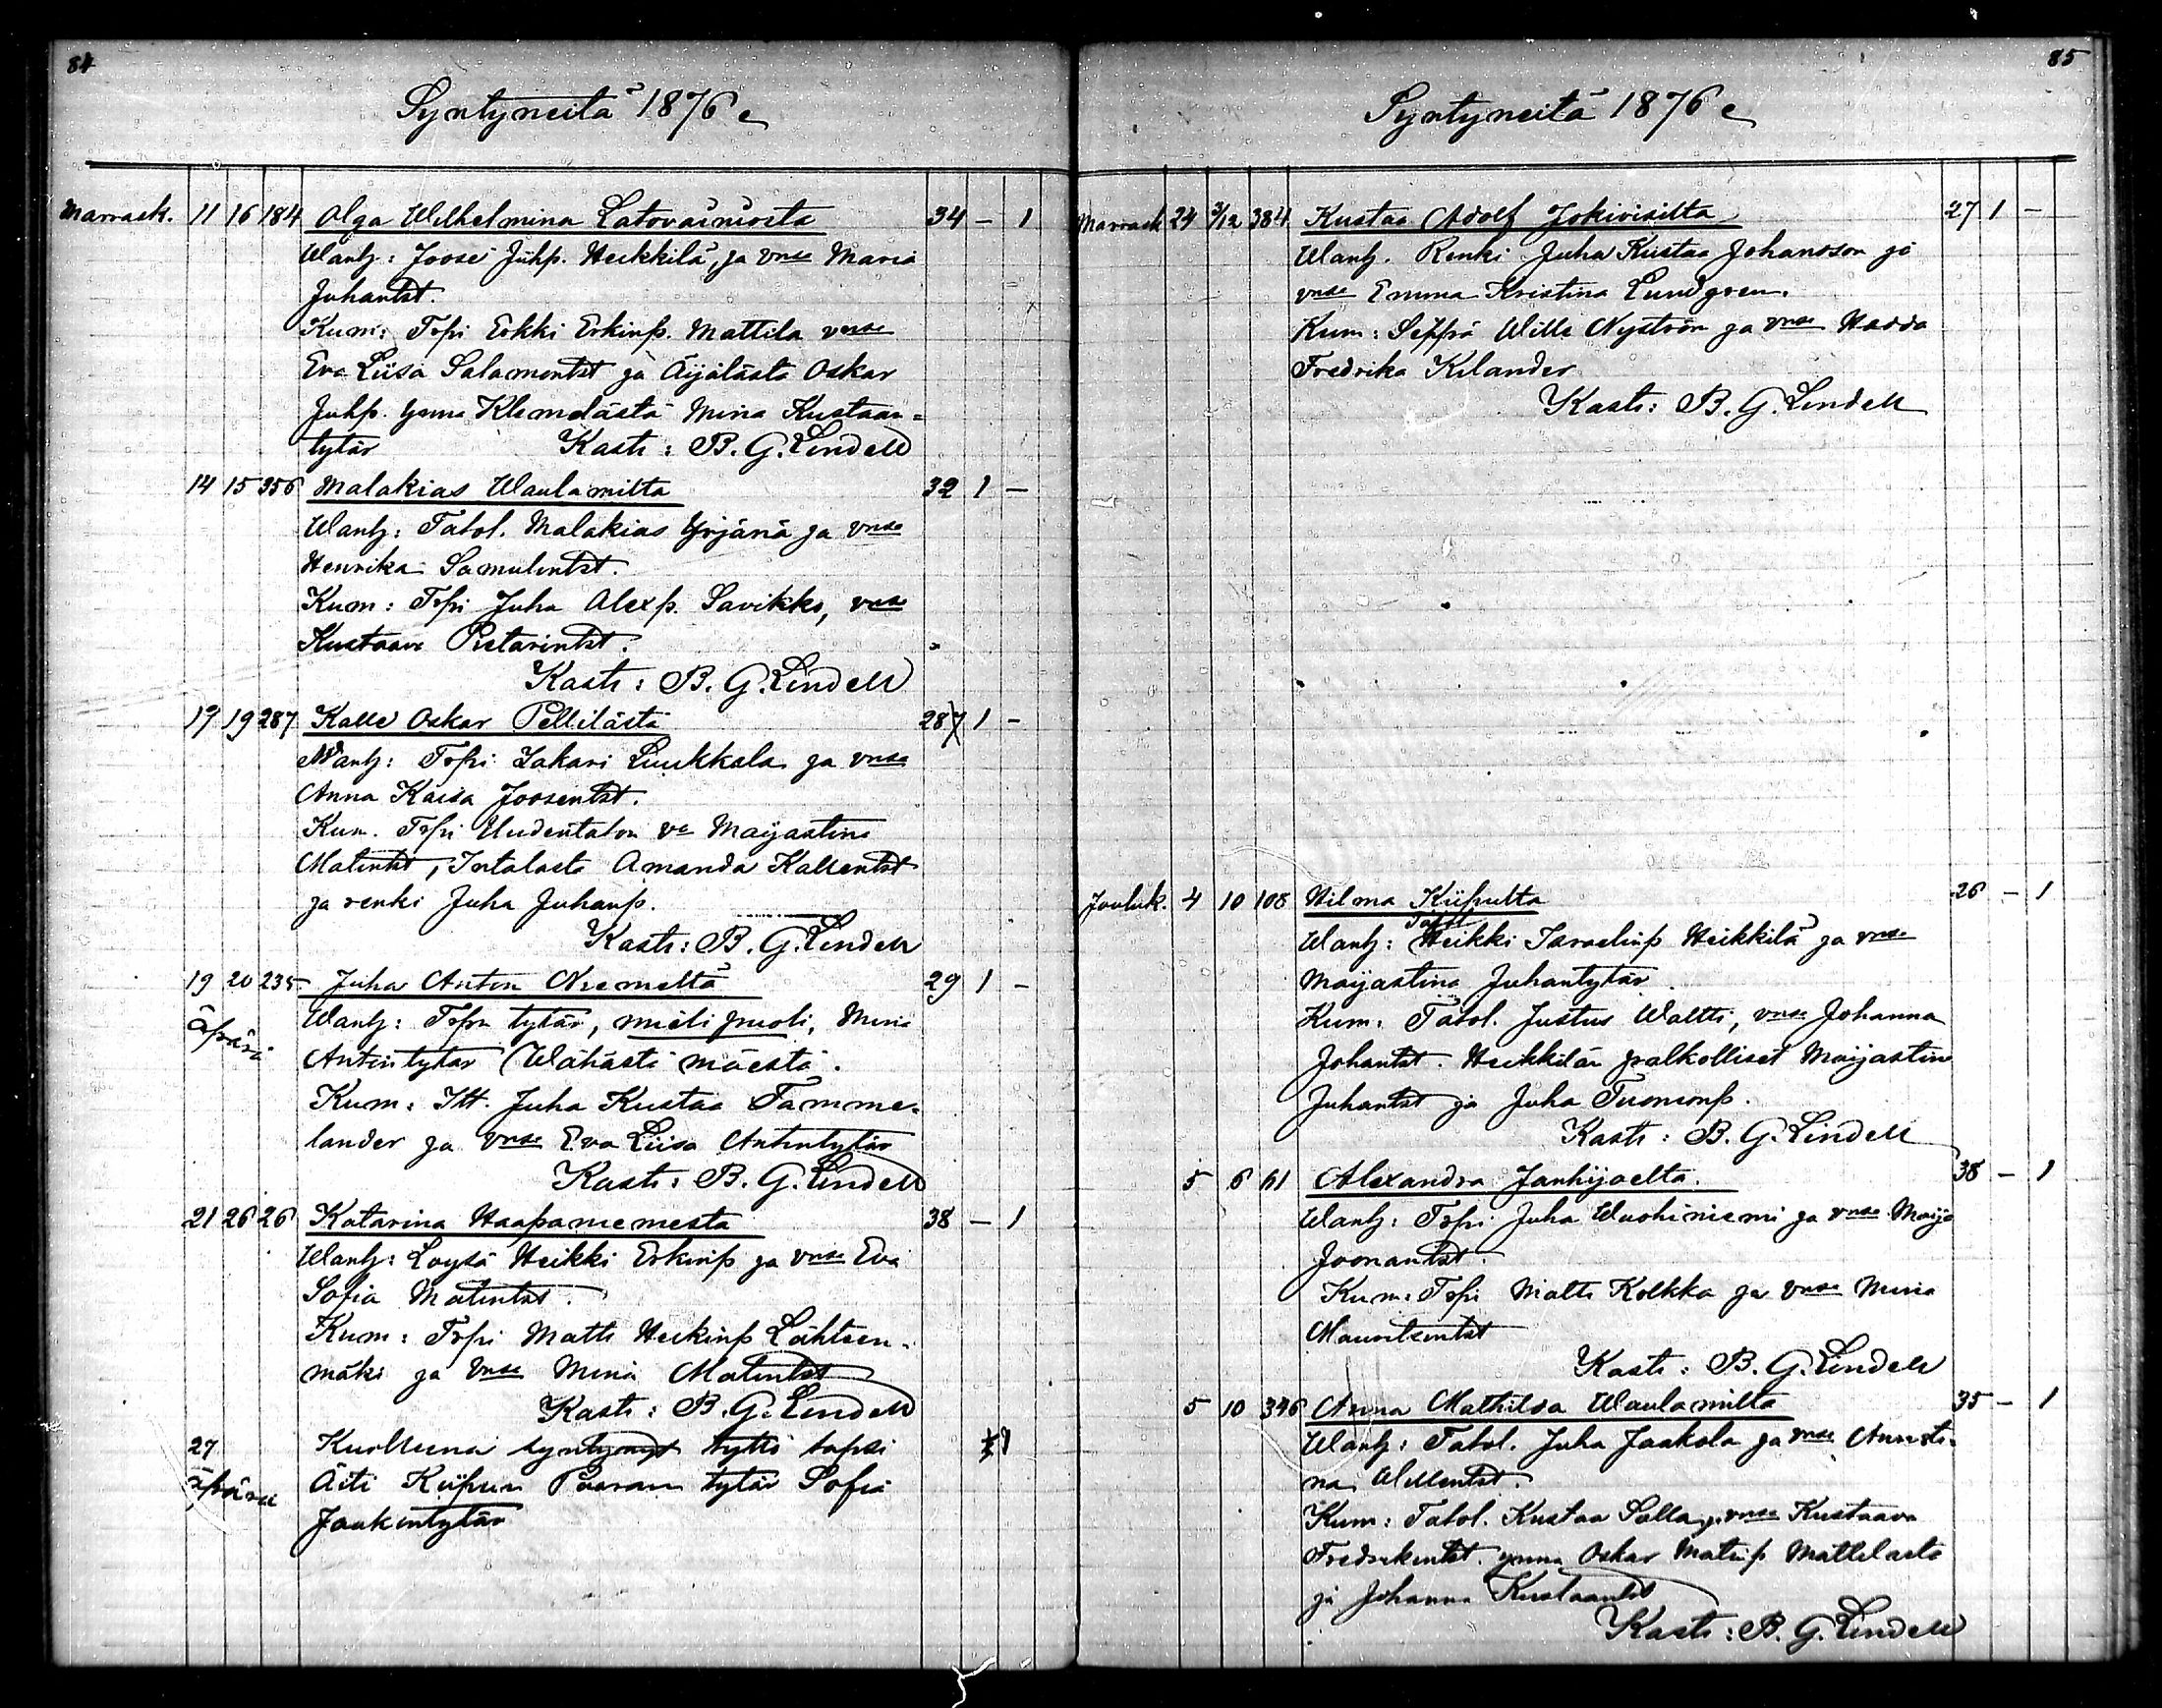 84
Syntyneitä 1876
Marrask. 11 16 184 Olga Wilhelmina Latovainiosta 34 - 1
Wanh: Joose Juhp. Heikkilä, ja vnsa Maria
Juhantst.
Kum: Trpri Erkki Erkinp. Mattila vnsa
Eva Liisa Salamontst ja Äijälästä Oskar
Juhp. ynna Klemelästä Mina Kustaan=
tytär Kasti: B. G. Lindell
14 15 356 Malakias Waulamilta 32 1 -
Wanh: Talol. Malakias Yrjänä ja vnsa
Henrika Samulintst.
Kum: Trpri Juha Alexp. Savikko, vnsa
Kustaava Pietarintst.
Kasti: B. G. Lindell
19 287 Kalle Oskar Pellilästä 28 1 -
Wanh: Trpri Sakari Luukkala ja vnsa
Anna Kaisa Joosentst.
Kum. Trpri Uudentalon va Maijastina
Matintst, Intalasta Amanda Kallentst
ja renki Juha Juhanp.
Kasti: B. G. Lindell
19 20 235 Juha Anton Niemeltä 29 1 -
äpärä
Wanh: Trprn tytär, mieli puoli, Mina
Antintytär (Wähästä mäestä.
Kum: Itt. Juha Kustaa Tamme-
lander ja vnsa Eva Liisa Antintytär
Kasti: B. G. Lindell
21 26 26 Katarina Haapaniemestä 38 - 1
Wanh: Loysä Heikki Erkinp ja vnsa Eva
Sofia Matintst.
Kum: Trpri Matti Heikinp Lähteen-
mäki ja vnsa Mina Matintst
Kasti: B. G. Lindell
27 Kuolleena syntynyt tyttö lapsi 1
äpärä
Äiti Kiipun Paavan tytär Sofia
Jaakintytär
85
Syntyneitä 1876
Marrask 24 3/12 384 Kustaa Adolf Jokivisiltä 27 1 -
Wanh. Renki Juha Kustaa Johansson ja
vnsa Emma Kristina Lundgren.
Kum: Seppä Wille Nyström ja vnsa Hedda
Fredrika Kilander
Kasti: B. G. Lindell
Jouluk. 4 10 108 Hilma Kiipulta 26 - 1
Talol
Wanh: Heikki Israelinp Heikkilä ja vnsa
Maijastina Juhantytär.
Kum: Talol. Justus Waltti, vnsa Johanna
Johantst. Heikkilän palkolliset Maijastina
Juhantst ja Juha Tuomonp.
Kasti: B. G. Lindell
5 6 61 Alexandra Janhijoelta. 38 - 1
Wanh: Trpri Juha Wuohiniemi ja vnsa Maija
Joonantst.
Kum: Trpri Matti Kolkka ja vnsa Mina
Mauritsintst
Kasti: B. G. Lindell
5 10 346 Anna Mathilda Waulamilta 35 - 1
Wanh: Talol. Juha Jaakola ja vnsa Annasti-
na Willentst.
Kum: Talol. Kustaa Salla ja vnsa Kustaava
Fredrikintst. ynna Oskar Matinp Mattilasta
ja Johanna Kustaantst
Kasti: B. G. Lindell